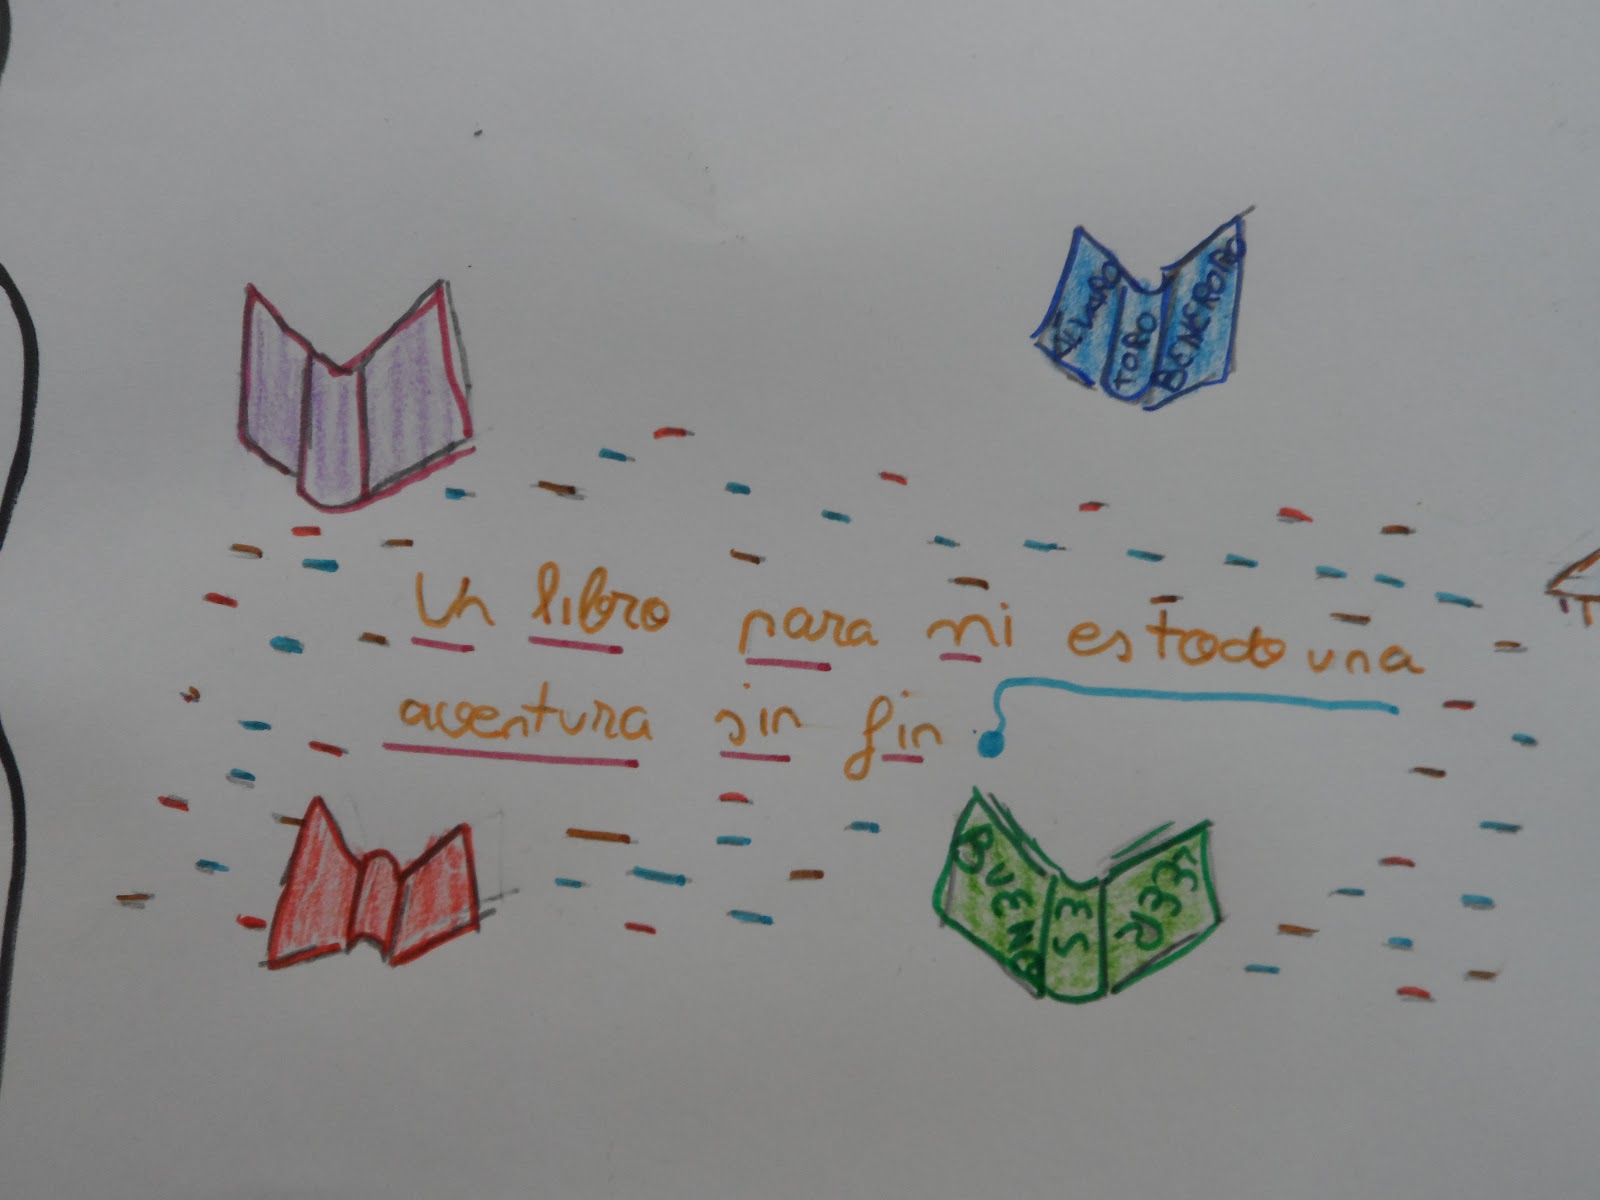 TORO
Un libro para mi es todo una
aventura sin fin
BUENO
ES
LEER